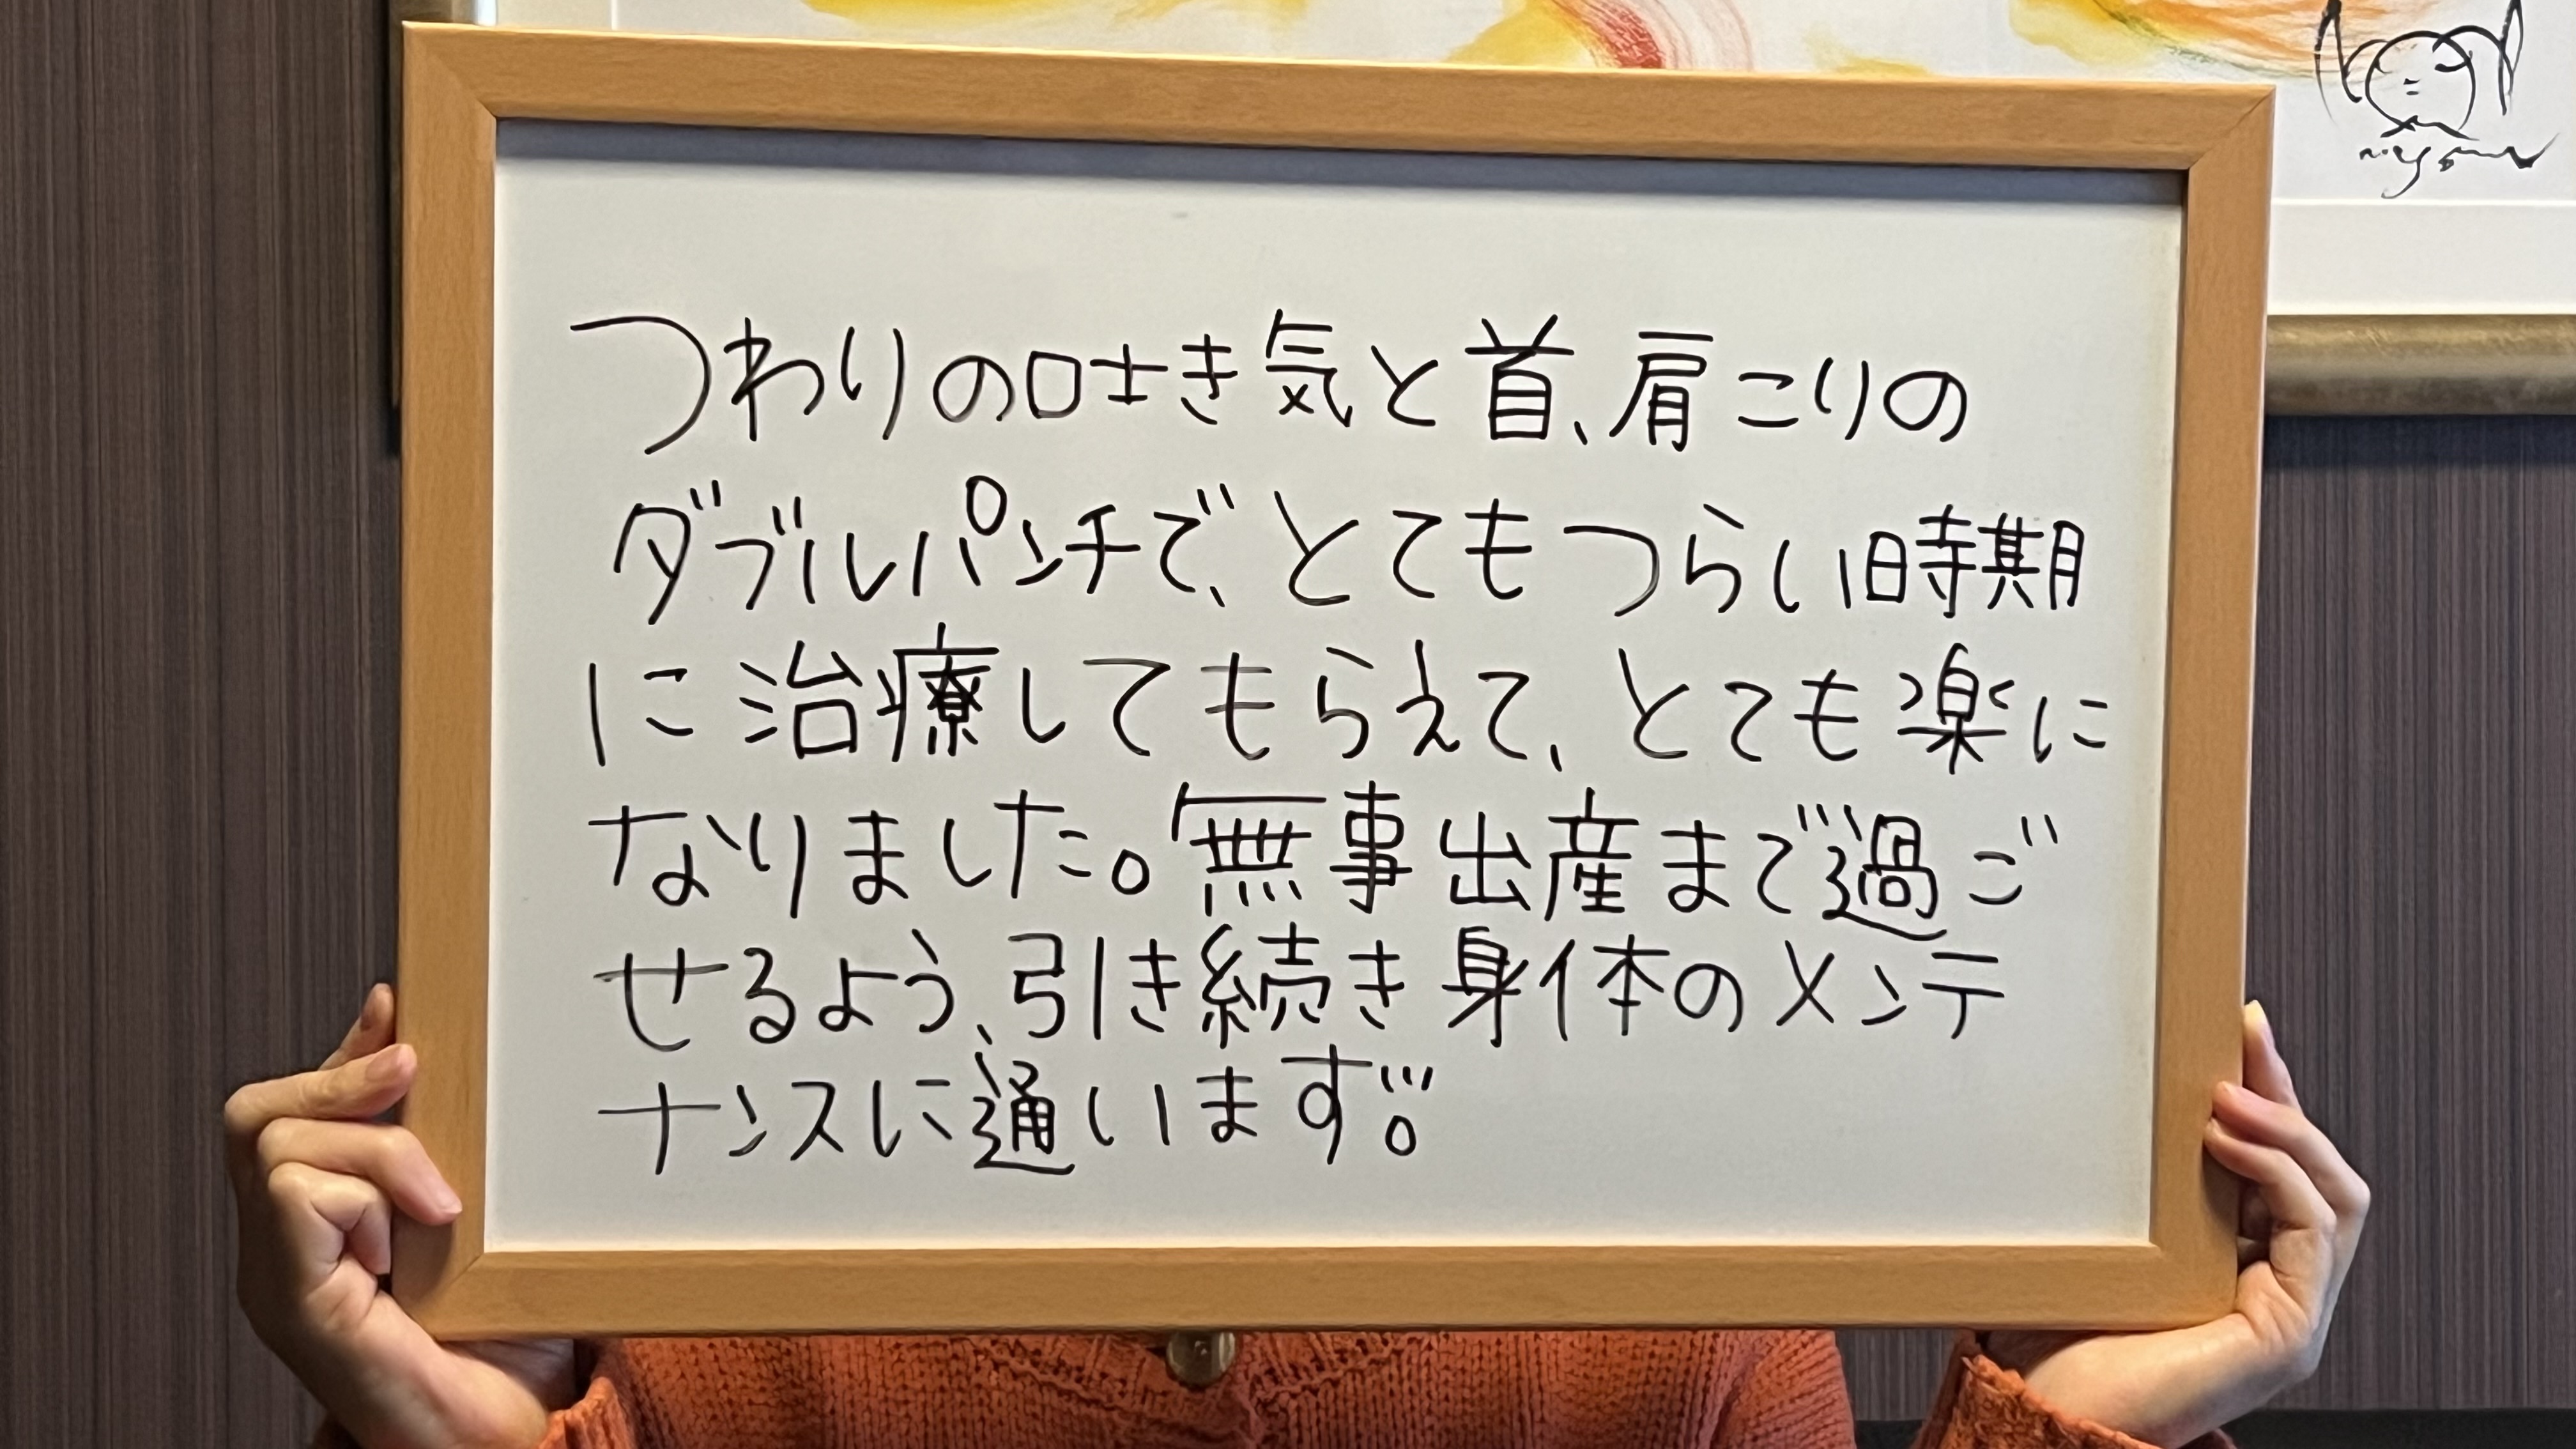 つわりの吐き気と首、肩こりの
ダブルパンチで、とてもつらい時期
に治療してもらえて、とても楽に
なりました。無事出産まで過ご
せるよう、引き続き身体のメンテ
ナンスに通います!!!